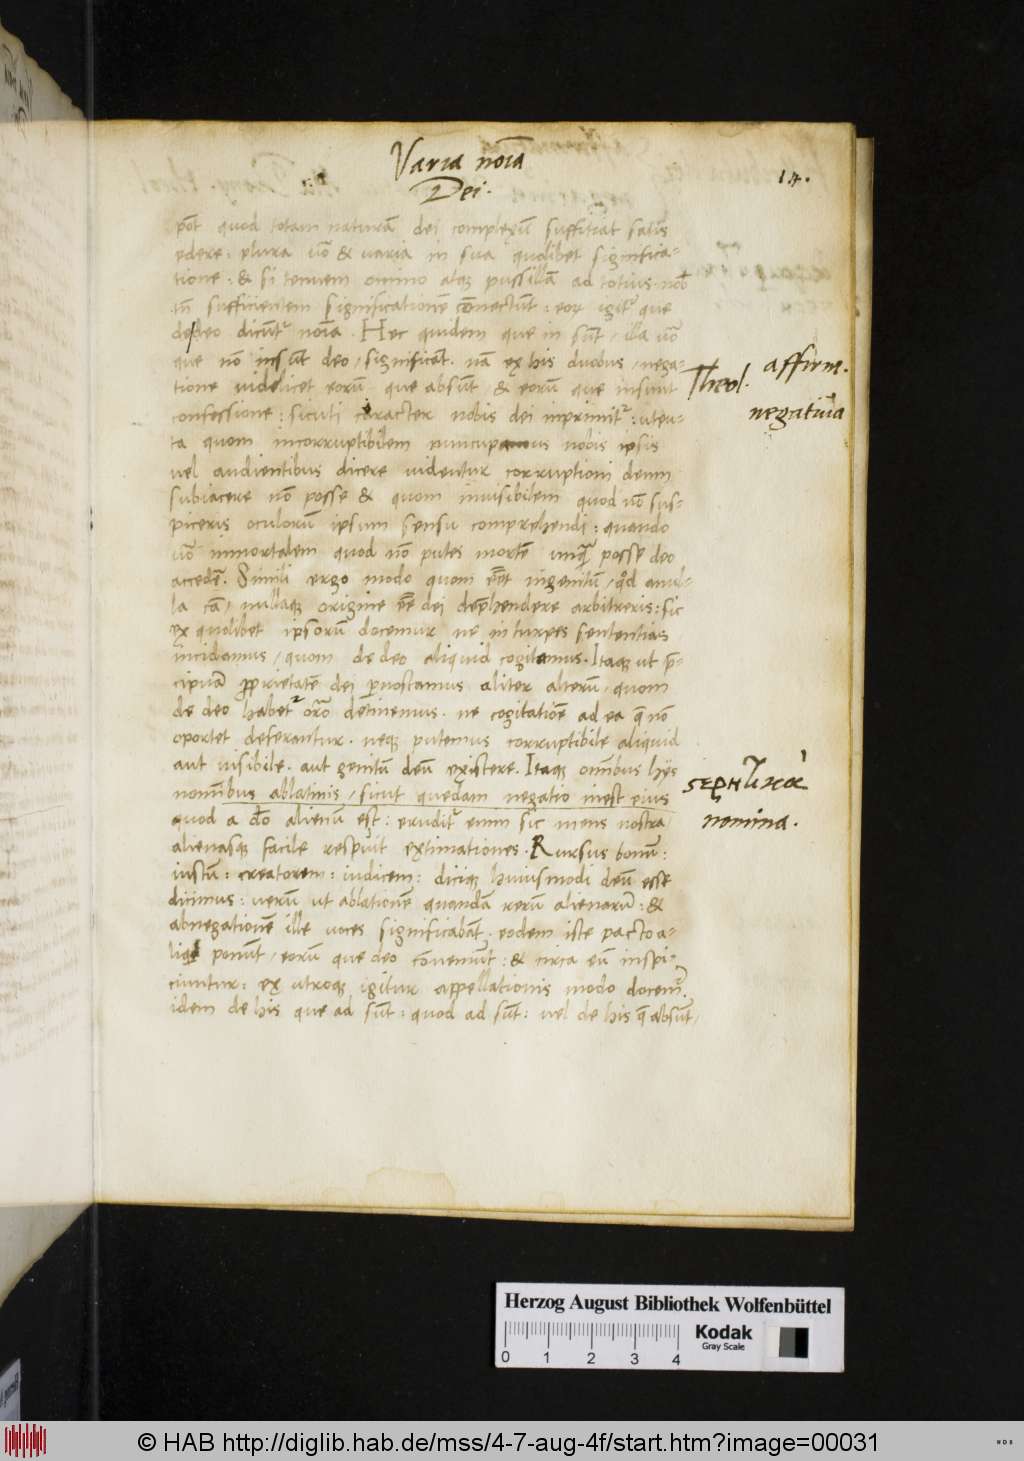 Varia noīa
Dei.
14.
pōt quod totam naturā dei complexū suffitiat satis
edere: plura uō & varia in sua quodibet significa-
tione. & si tenuem omino atqz pussillā ad totius
sufficientem significationē cōnectūt: eor igit que
de deo dicūt noīa. Hec quidem que in sūt, illa uō
que nō insūt deo, significāt. nā ex his duobus, nega-
tione videlicet eorū que absūt & eorū que insunt
confessione: sicuti caracter nobis dei inprimit: uter-
ta quom incorruptibilem nobis ipsis
vel audientibus dicere videntur corruptioni deum
subiacere nō posse & quom inuisibilem quod nō sus-
piceris oculorū ipsum sensu comprehendi: quando
uō inmortalem quod nō putes mortē unquā posse deo
accedē. Simili ergo modo quom ingenitū, qd a nul-
la cā, nullaqz origine eē dei dephendere arbitreris: sic
ex quolibet ipsorū docemur ne in turpes sententias
incidamus, quom de deo aliquid cogitamus. Itaqz ut p̄-
cipuā proprietatē dei pnoscamus aliter alterū, quom
de deo habet orō detinemus. ne cogitationē ad ea q̄ nō
oportet deferantur. neqz putemus corruptibile aliquid
aut uisibile. aut genitū deū existere. Itaqz omībus hijs
nomībus ablatinis, sicut quedam negatio inest eius
quod a dō alienū est: erudit enim sic mens nostra
alienasqz facile respuit extimationes. Rursus bonū:
iustū: creatorem: iudicem: dicīqz huiusmodi deū esse
dicimus: uerū ut ablationē quandā rerū alienarū: &
abnegationē ille uoces significabāt. eodem iste pacto a-
ponūt, eorū que deo cōuemūt: & circa eū inspi-
ciuntur: ex utroqz igitur appellationis modo docem.
idem de his que ad sūt: quod ad sūt: vel de his q̄ absūt,
Theol.
affirm.
negatiua
nomina.
Herzog August Bibliothek Wolfenbüttel
0 1 2 3 4
Kodak
Gray Scale
© HAB http://diglib.hab.de/mss/4-7-aug-4f/start.htm?image=00031